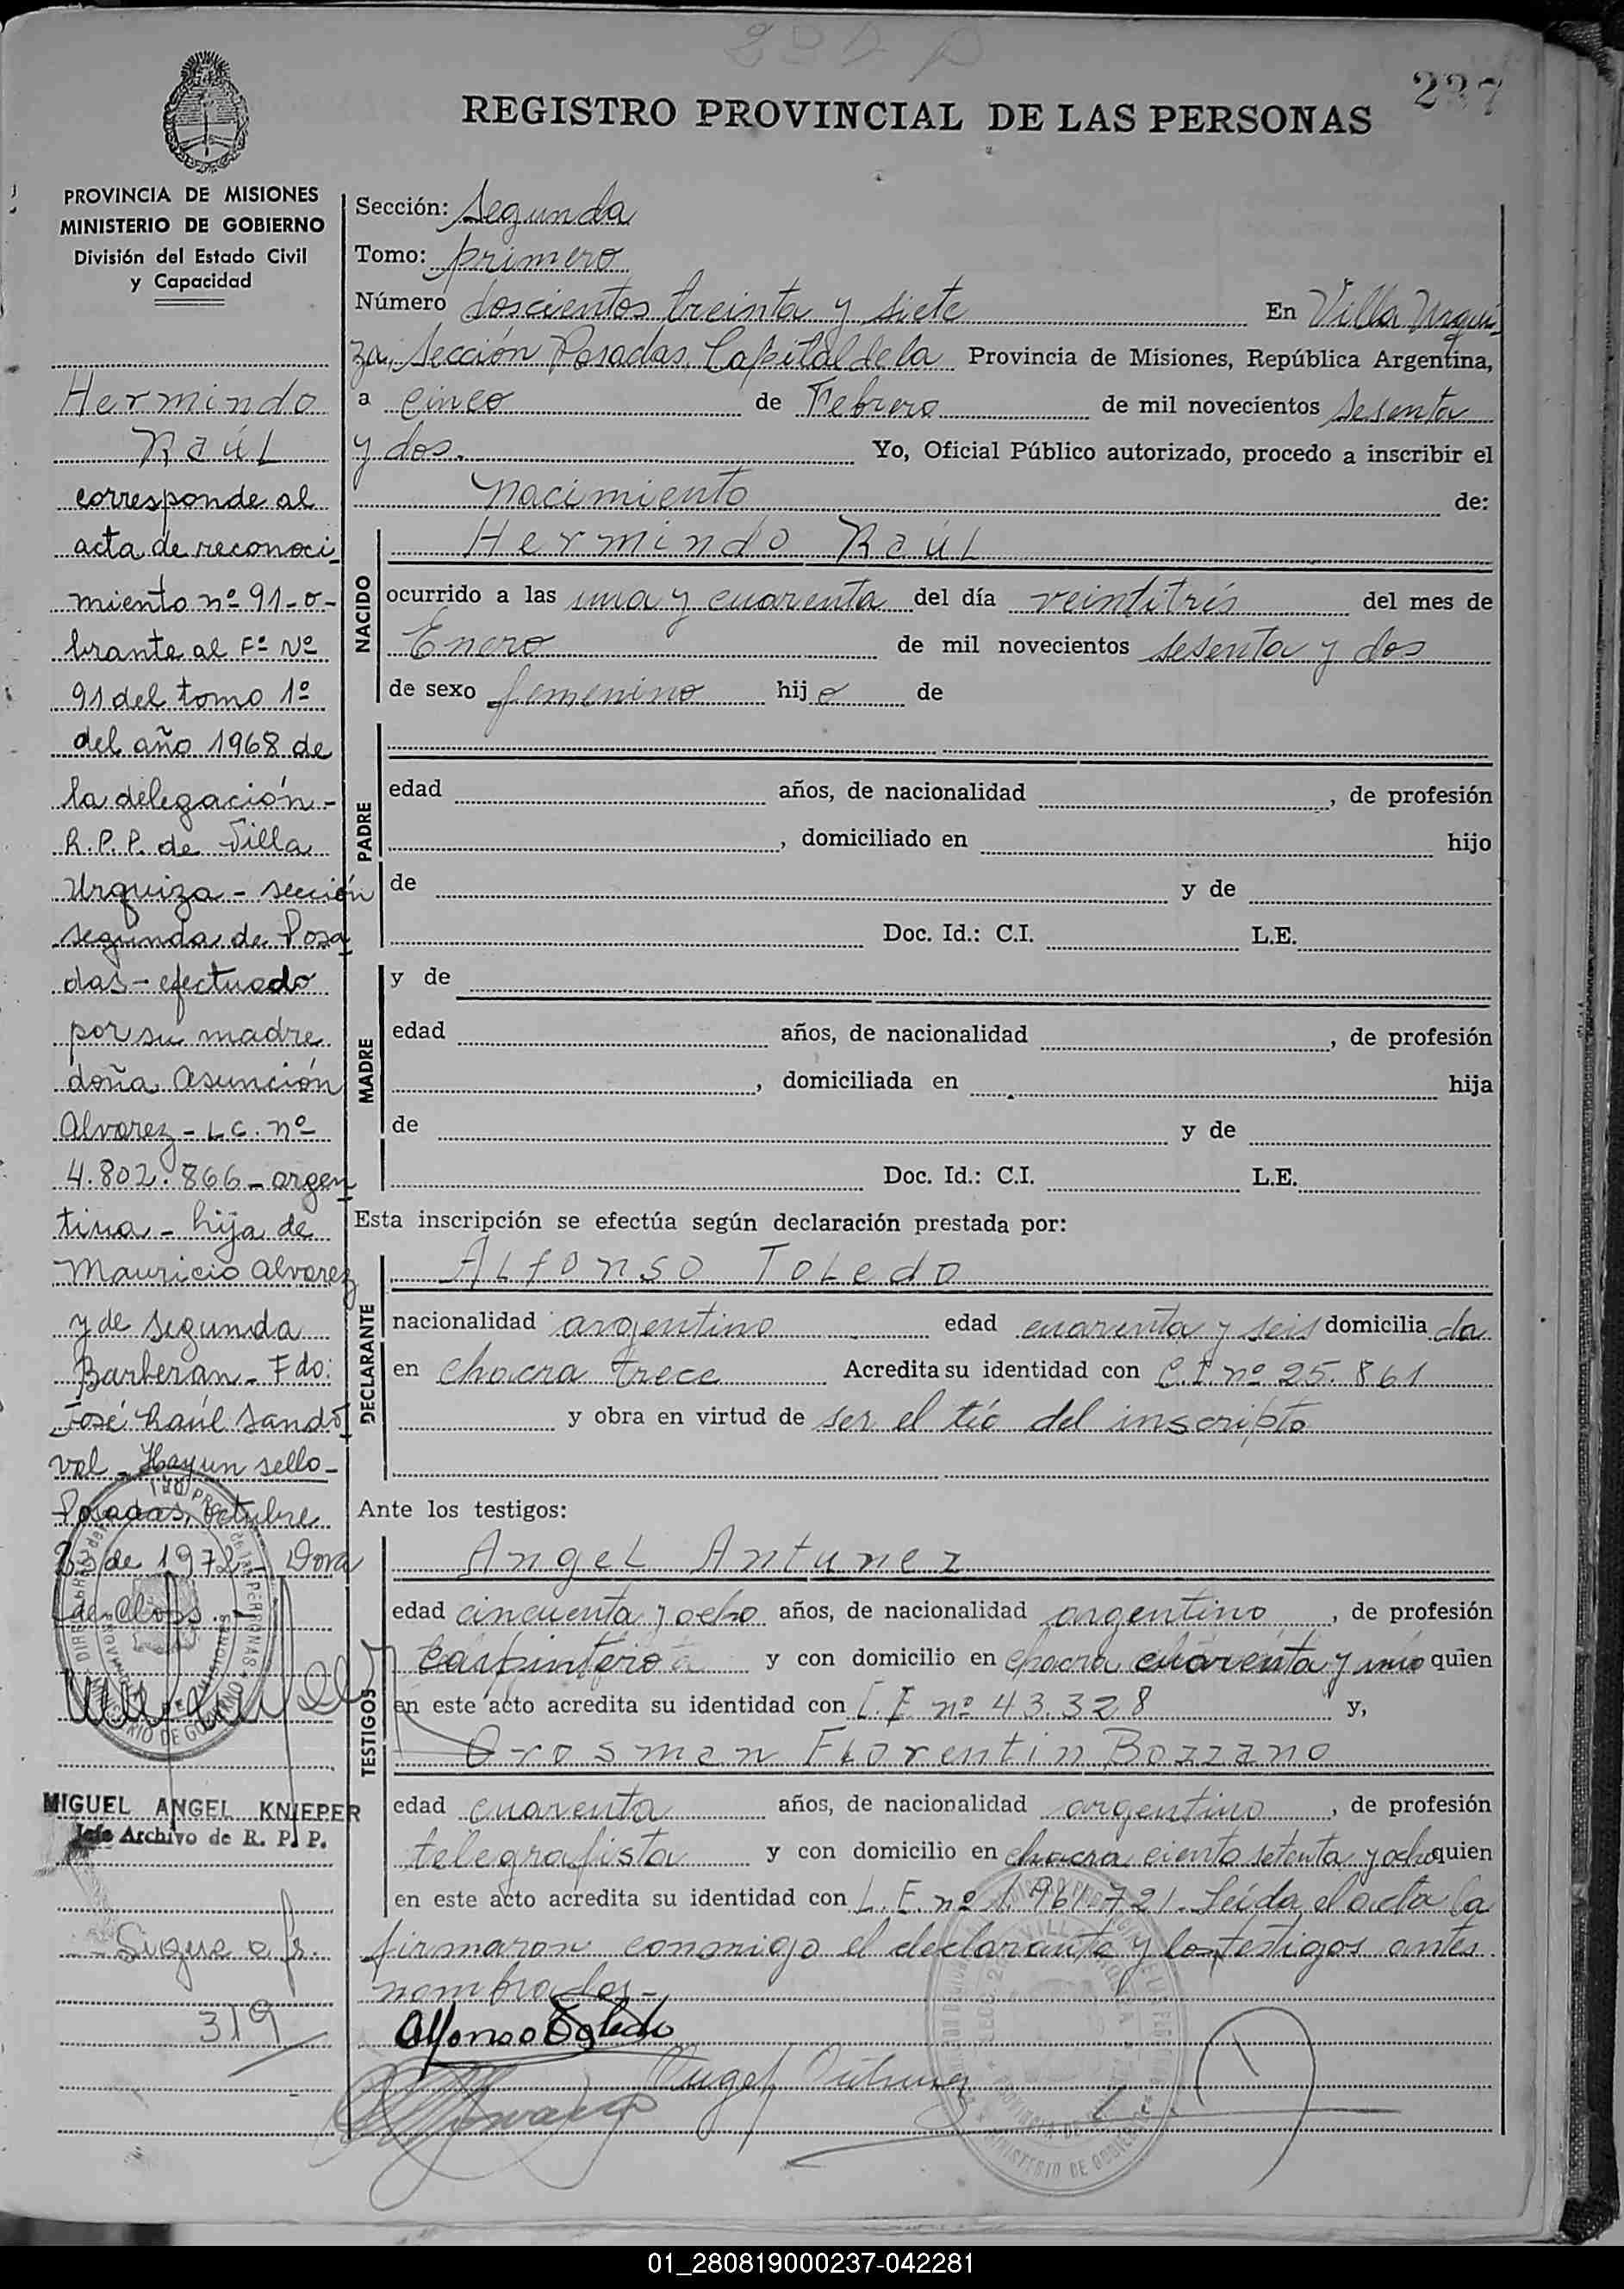 237
REGISTRO PROVINCIAL DE LAS PERSONAS
PROVINCIA DE MISIONES
MINISTERIO DE GOBIERNO
División del Estado Civil
y Capacidad
Hermindo
Raúl
corresponde al
acta de reconoci
miento nº 91-o-
brante al Fº Nº
91 del tomo 1º
del año 1968 de
la delegación-
R.P.P. de Villa
Urquiza - sección
segunda de Posa
das - efectuado
por su madre
doña Asunción
Alvarez - L C. nº
4.802.866 - argen
tina - hija de
Mauricio Alvarez
y de Segunda
Barberan - Fdo:
José Raúl Sando
val - Hay un sello-
Posadas, octubre
de 1972 - Dora
de Closs.-
MIGUEL ANGEL KNIEPER
Jefe Archivo de R. P. P.
Sigue a fs.
319
Sección: Segunda
Tomo: primero
Número doscientos treinta y siete En Villa Urqui
za, Sección Posadas, Capital de la Provincia de Misiones, República Argentina,
a cinco de Febrero de mil novecientos sesenta
y dos. Yo, Oficial Público autorizado, procedo a inscribir el
nacimiento de:
NACIDO
Hermindo Raúl
ocurrido a las una y cuarenta del día veintitrés del mes de
Enero de mil novecientos sesenta y dos
de sexo femenino hijo de
PADRE
edad años, de nacionalidad , de profesión
, domiciliado en hijo
de y de
Doc. Id.: C.I. L.E.
MADRE
y de
edad años, de nacionalidad , de profesión
, domiciliada en hija
de y de
Doc. Id.: C.I. L.E.
Esta inscripción se efectúa según declaración prestada por:
DECLARANTE
Alfonso Toledo
nacionalidad argentino edad cuarenta y seis domicilia da
en chacra trece Acredita su identidad con C.I. nº 25.861
y obra en virtud de ser el tío del inscripto
Ante los testigos:
TESTIGOS
Angel Antunez
edad cincuenta y ocho años, de nacionalidad argentino , de profesión
Carpintero y con domicilio en chacra cuarenta y uno quien
en este acto acredita su identidad con nº 43.328 y,
Orosman Florentin Bozzano
edad cuarenta años, de nacionalidad argentino , de profesión
telegrafista y con domicilio en chacra ciento setenta y ocho quien
en este acto acredita su identidad con L.E. nº 1.961.721. Leída el acta la
firmaron conmigo el declarante y los testigos antes
nombrados.-
Alfonso Toledo
Angel Antunez
01_280819000237-042281